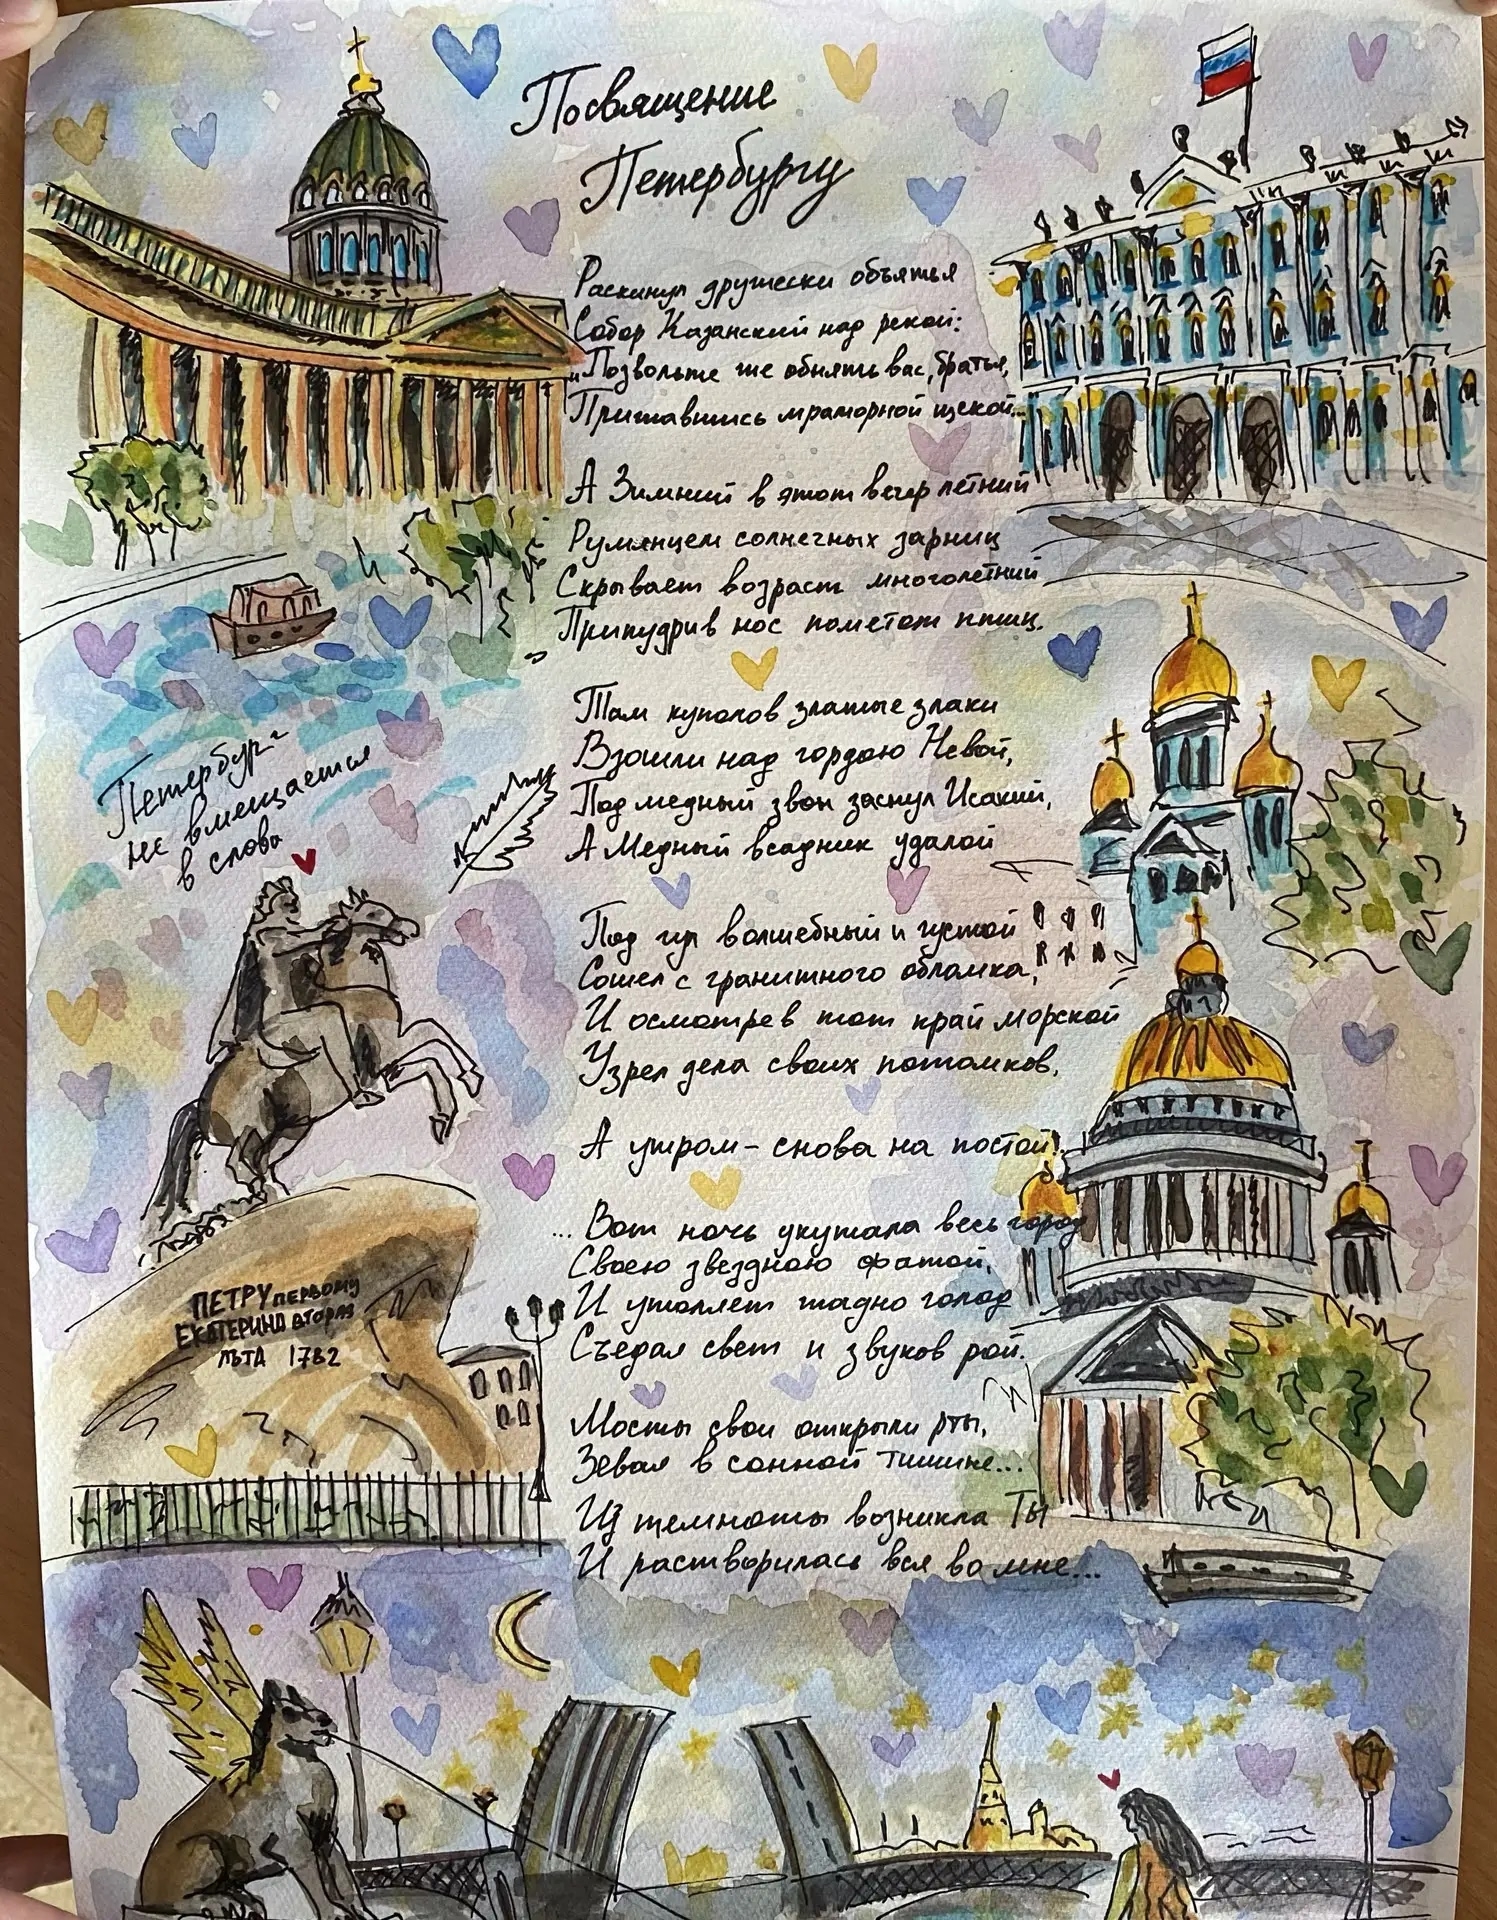 Посвящение
Петербургу
Раскинул дружески объятья
Собор Казанский над рекой:
„Позвольте же обнять вас, братья,
Прижавшись мраморной щекой...
А Зимний в этот вечер летний
Румянцем солнечных зарниц
Скрывает возраст многолетний
Припудрив нос пометом птиц.
Там куполов златые злаки
Взошли над гордою Невой,
Под медный звон заснул Исакий,
А Медный всадник удалой
Под гул волшебный и густой
Сошел с гранитного обломка,
И осмотрев тот край морской
Узрел дела своих потомков,
А утром - снова на постой!
... Вот ночь укутала весь город
Своею звездною фатой,
И утоляет жадно голод
Съедая свет и звуков рой.
Мосты свои открыли рты,
Зевая в сонной тишине...
Из темноты возникла Ты
И растворилась вся во мне...
Петербург
не вмещается
в слова
ПЕТРУ первому
ЕКАТЕРИНА вторая
лѣта 1782